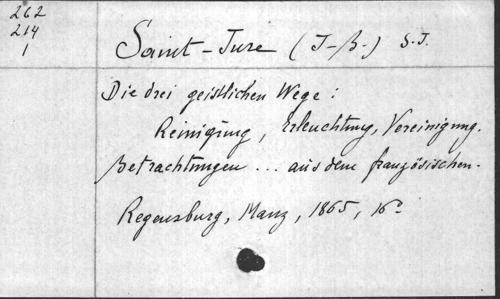 262
214
1
Saint-Jure (J-B.) S.J.
Die drei geistlichen Wege :
Reinigung, Erleuchtung, Vereinigung.
Betrachtungen ... aus dem französischen.
Regensburg, Manz, 1865, 16°